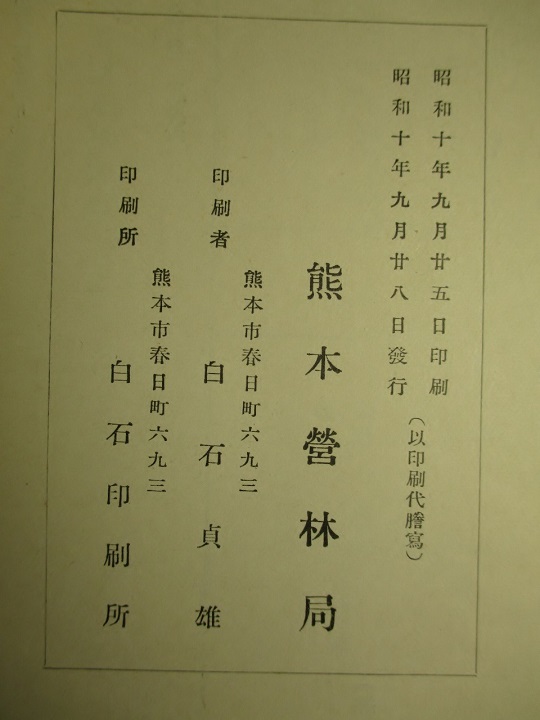 昭和十年九月廿五日印刷
昭和十年九月廿八日發行
（以印刷代謄寫）
熊本營林局
熊本市春日町六九三
印刷者　白石貞雄
熊本市春日町六九三
印刷所　白石印刷所